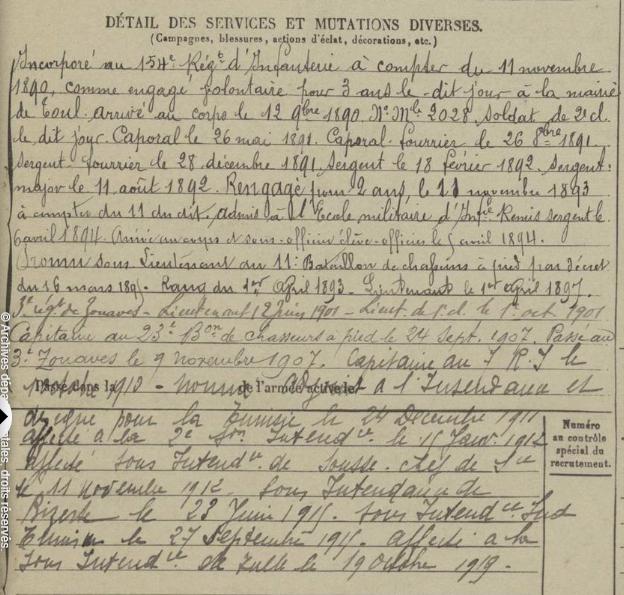 DÉTAIL DES SERVICES ET MUTATIONS DIVERSES.
(Campagnes, blessures, actions d'éclat, décorations, etc.)
Incorporé au 154e Régt d'Infanterie à compter du 11 novembre
1890, comme engagé volontaire pour 3 ans le dit jour à la mairie
de Toul. Arrivé au corps le 12 9bre 1890. No Mle 2028, soldat de 2e cl.
le dit jour. Caporal le 26 mai 1891. Caporal fourrier le 26 8bre 1891.
Sergent fourrier le 28 décembre 1891. Sergent le 18 février 1892. Sergent-
major le 11 août 1892. Rengagé pour 2 ans, le 11 novembre 1893
à compter du 11 du dit, admis à l'Ecole militaire d'Infie Remis sergent le
6 avril 1894. Arrivé au corps et sous-officier élève-officier le 5 avril 1894.
Promu sous Lieutenant au 11e Bataillon de chasseurs à pied par décret
du 16 mars 189 . Rang du 1er April 1893. Lieutenant le 1er april 1897.
3e régt de Zouaves - Lieutenant 12 juin 1901 - Lieut. de 1e cl. le 1er oct. 1901
Capitaine au 23e Bon de chasseurs à pied le 24 Sept. 1907. Passé au
3e Zouaves le 9 novembre 1907. Capitaine au 7 R.I le
Passé dans la 1910 - nommé de l'armée active le Adjoint à l'Intendance et
pour la Tunisie le 24 Décembre 1911
affecté à la 2e Son Intendce le 11 Janv. 1912
affecté sous Intendce de Sousse. chef de Sce
le 11 novembre 1912 - Sous Intendance de
Bizerte le 23 Juin 1915. Sous Intendce Sud
Tunisien le 27 Septembre 1915. affecté à la
Sous Intendce de le 19 octobre 1919.
Numéro
au contrôle
spécial du
recrutement.
© Archives départementales, droits réservés